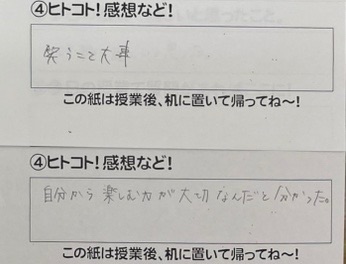 ④ヒトコト!感想など!
笑うこと大事
この紙は授業後、机に置いて帰ってね〜!
④ヒトコト!感想など!
自分から楽しむ力が大切なんだと分かった。
この紙は授業後、机に置いて帰ってね〜!